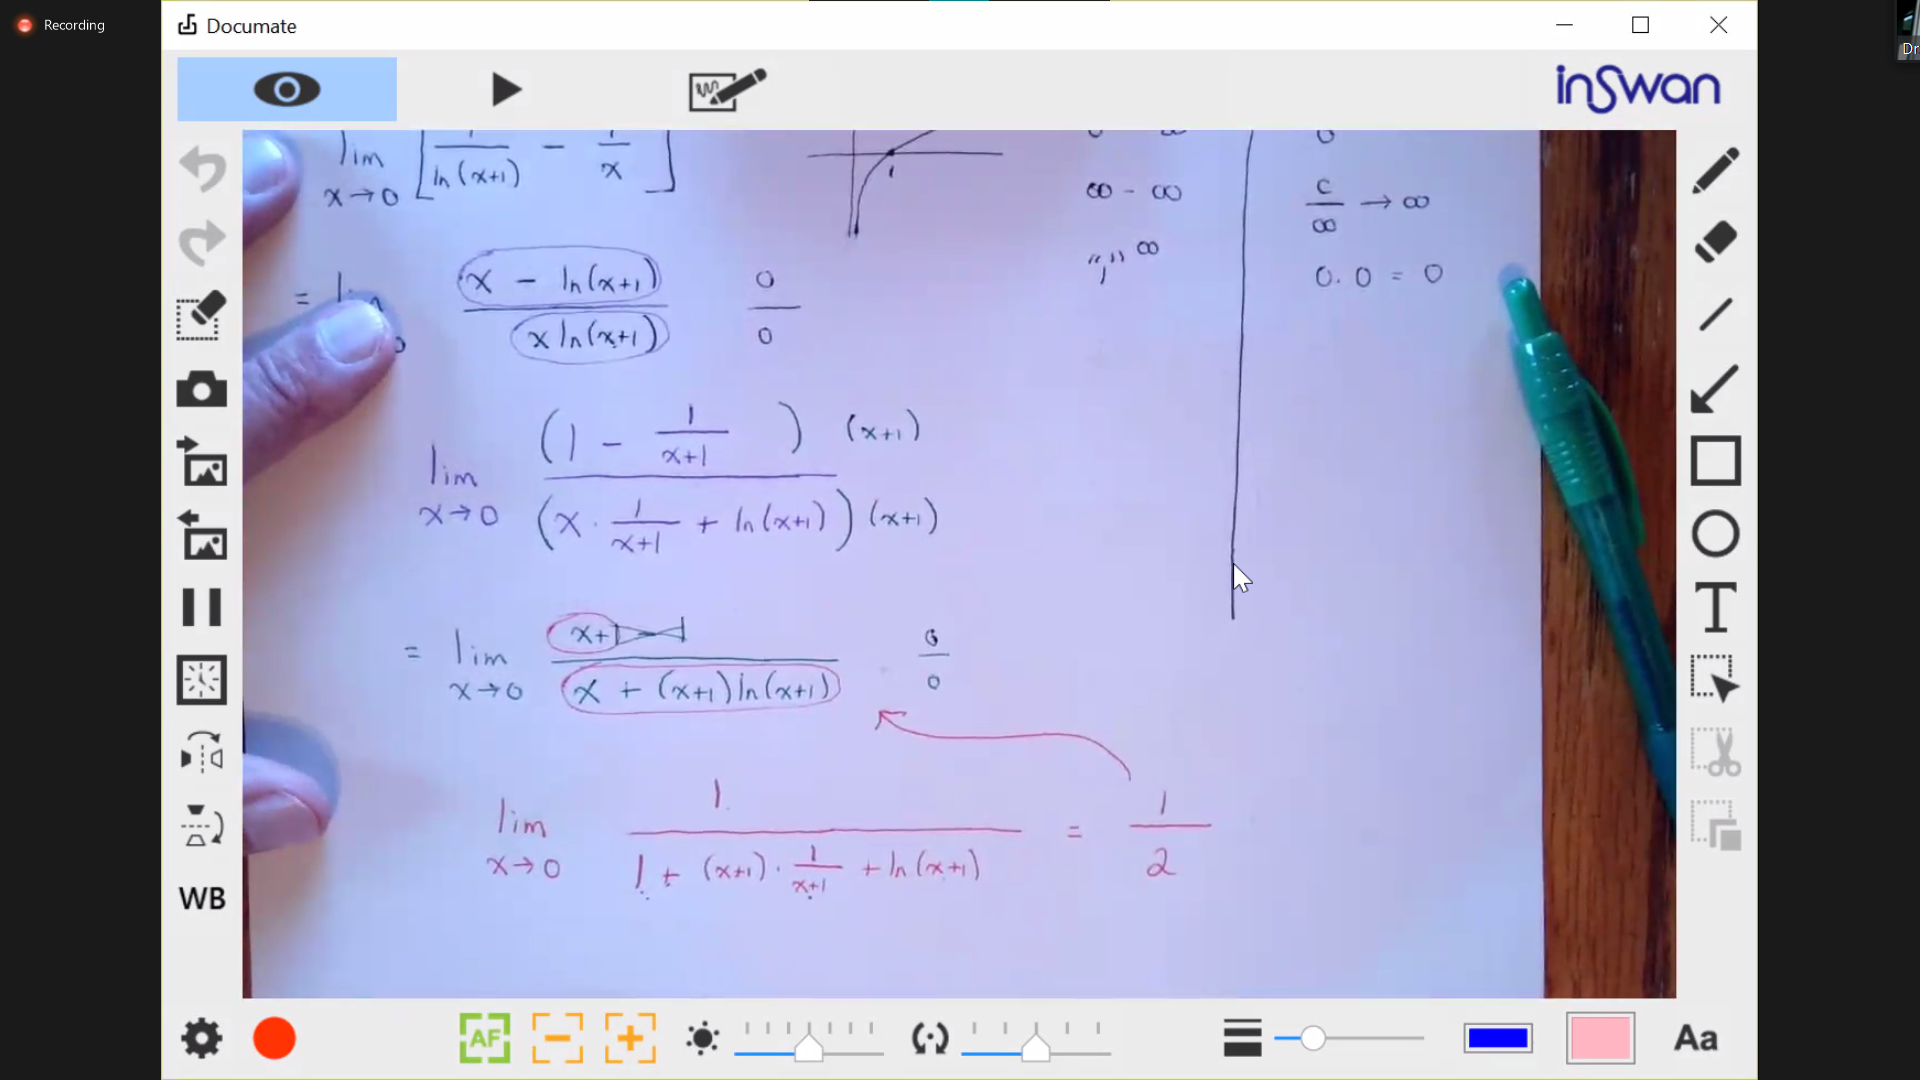 Recording
Documate
Dr
inSwan
lim x→0 [ 1/ln(x+1) - 1/x ]
1
∞ - ∞
"1" ∞
c/∞ → ∞
0 · 0 = 0
= lim (x - ln(x+1))/(x ln(x+1)) 0/0
lim x→0 ((1 - 1/(x+1)) (x+1))/((x · 1/(x+1) + ln(x+1)) (x+1))
= lim x→0 (x+1-1)/(x + (x+1)ln(x+1)) 0/0
lim x→0 1/(1 + (x+1) · 1/(x+1) + ln(x+1)) = 1/2
WB
T
AF
Aa